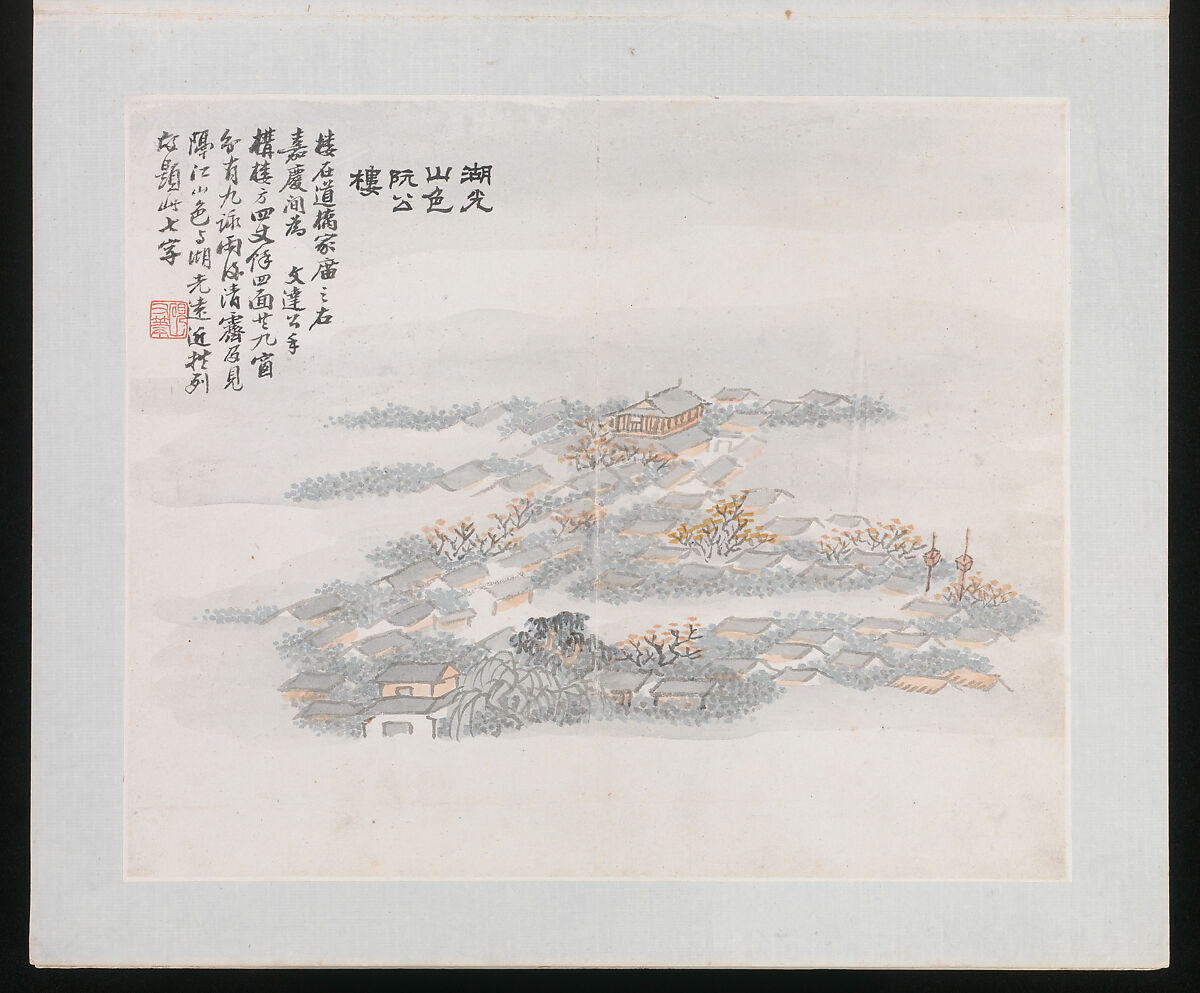 湖光
山色
阮公
樓
楼在道橋家庿之右
嘉慶间為 文達公手
構楼方四丈餘四面共九窗
有九詠雨後清霽見
隔江山色与湖光遠近排列
故題此七字